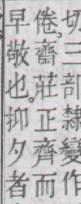 切三部隸變作
倦、齋莊正齊而
早敬也。抑夕者